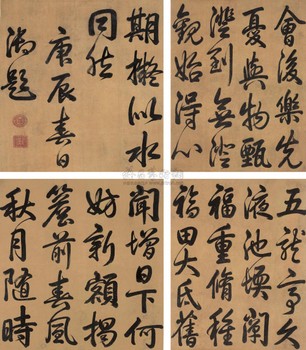 五龍亭久
液池堧闡
福重脩種
福田大氐舊
聞增日下何
妨新額揭
簷前春風
秋月隨時
會後樂先
憂與物甄
澄到無澄
觀始得心
期擬似水
同然
庚辰春日
御題